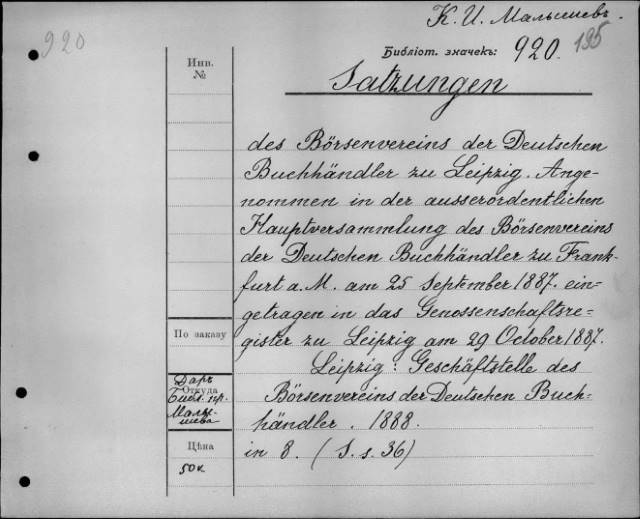 К. И. Малышевъ.
920
Библіот. значекъ: 920. 195
Инв. №
Satzungen
des Börsenvereins der Deutschen
Buchhändler zu Leipzig. Ange-
nommen in der ausserordentlichen
Hauptversammlung des Börsenvereins
der Deutschen Buchhändler zu Frank-
furt a. M. am 25 September 1887. ein-
getragen in das Genossenschaftsre-
gister zu Leipzig am 29 October 1887.
Leipzig: Geschäftstelle des
Börsenvereins der Deutschen Buch-
händler. 1888.
in 8. (S. s. 36)
По заказу
Даръ
Откуда
Библ. пр.
Малы-
шева
Цѣна
50 к